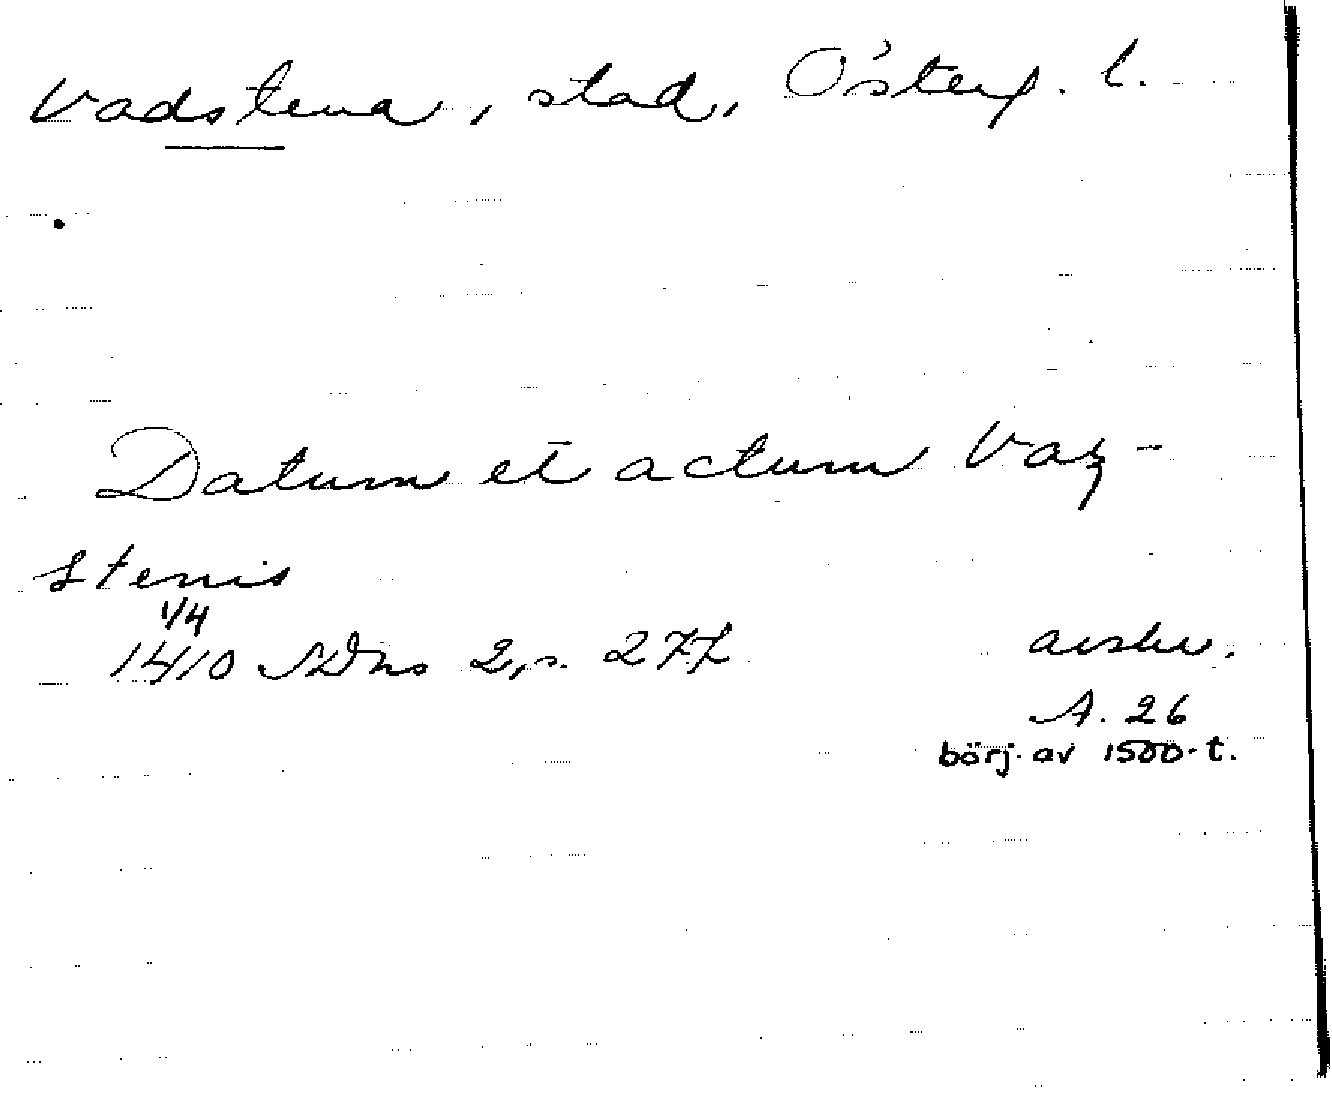 Vadstena, stad, Österg. l.
Datum et actum Vaz-
stenis
1/4
1410 SDns 2, s. 277
avskr.
A. 26
börj. av 1500-t.